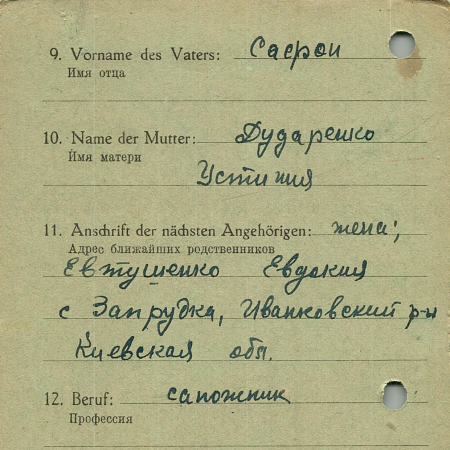 9. Vorname des Vaters: Сафрон
Имя отца
10. Name der Mutter: Дударенко
Имя матери
Устиния
11. Anschrift der nächsten Angehörigen: жена:
Адрес ближайших родственников
Евтушенко Евдокия
с Запрудка, Иванковский р-н
Киевская обл.
12. Beruf: сапожник
Профессия